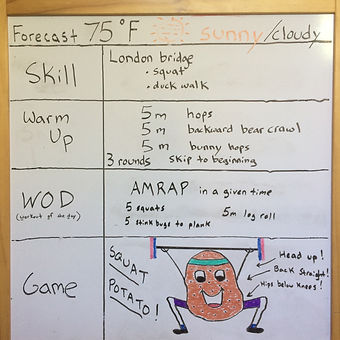 Forecast 75°F sunny/cloudy
Skill
London bridge
• squat
• duck walk
Warm
Up
5m hops
5m backward bear crawl
5m bunny hops
3 rounds skip to beginning
WOD
(workout of the day)
AMRAP in a given time
5 squats
5m log roll
5 stink bugs to plank
Game
SQUAT
POTATO!
Head up!
Back Straight!
Hips below knees!